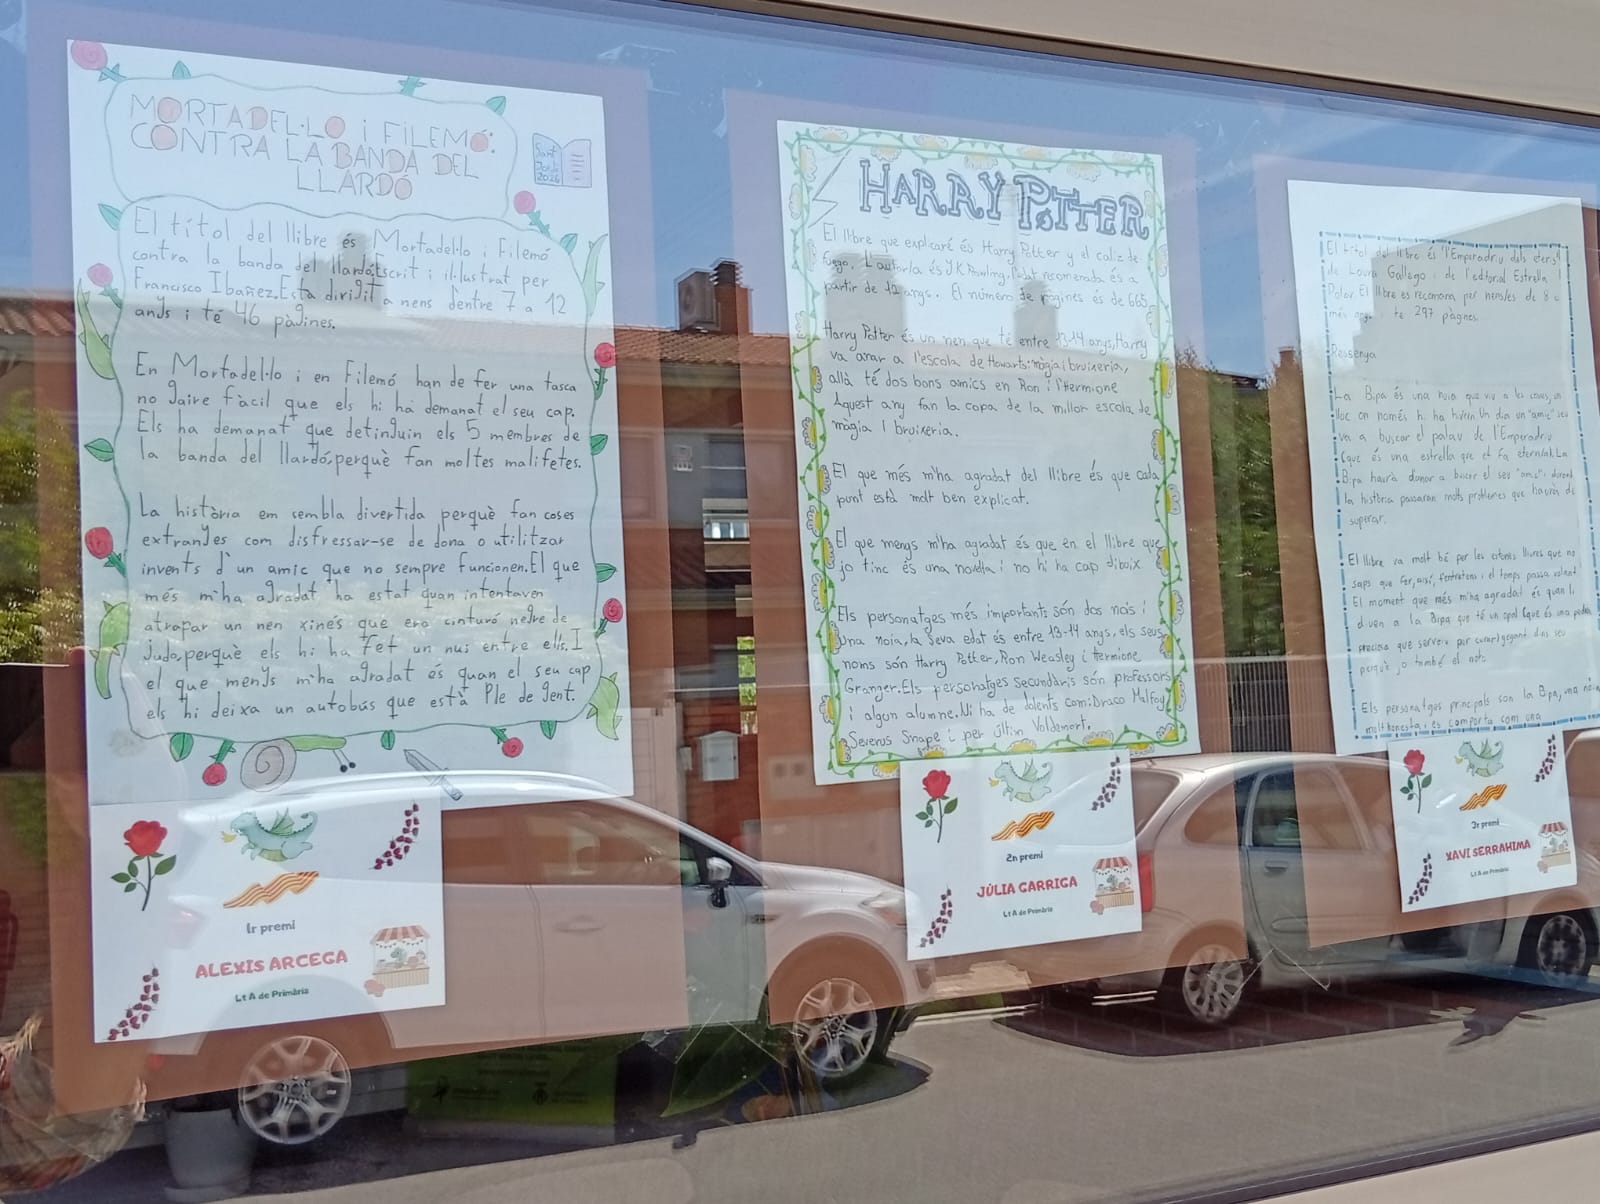 MORTADEL·LO i FILEMÓ:
CONTRA LA BANDA DEL
LLARDÓ
Sant
Jordi
2026
El títol del llibre és Mortadel·lo i Filemó
contra la banda del llardó.Escrit i il·lustrat per
Francisco Ibañez.Està dirigit a nens d'entre 7 a 12
anys i té 46 pàgines.
En Mortadel·lo i en Filemó han de fer una tasca
no gaire fàcil que els hi ha demanat el seu cap.
Els ha demanat que detinguin els 5 membres de
la banda del llardó,perquè fan moltes malifetes.
La història em sembla divertida perquè fan coses
extranyes com disfressar-se de dona o utilitzar
invents d'un amic que no sempre funcionen.El que
més m'ha agradat ha estat quan intentaven
atrapar un nen xinès que era cinturó negre de
judo,perquè els hi ha fet un nus entre ells.I
el que menys m'ha agradat és quan el seu cap
els hi deixa un autobús que està Ple de gent.
1r premi
ALEXIS ARCEGA
Lt A de Primària
HARRY POTTER
El llibre que explicaré és Harry Potter y el caliz de
fuego. L'autor/a és J.K.Rowling, l'edat recomenada és a
partir de 12 anys. El número de pàgines és de 665.
Harry Potter és un nen que té entre 13-14 anys,Harry
va anar a l'escola de Howarts:màgia i bruixeria,
allà té dos bons amics en Ron i l'Hermione.
Aquest any fan la copa de la millor escola de
màgia i bruixeria.
El que més m'ha agradat del llibre és que cada
punt està molt ben explicat.
El que menys m'ha agradat és que en el llibre que
jo tinc és una novel·la i no hi ha cap dibuix.
Els personatges més importants són dos nois i
una noia, la seva edat és entre 13-14 anys, els seus
noms són Harry Potter, Ron Weasley i Hermione
Granger.Els personatges secundaris són professors
i algun alumne.N'i ha de dolents com:Draco Malfoy
Severus Snape i per últim Voldemort.
2n premi
JÚLIA GARRIGA
Lt A de Primària
El títol del llibre és l'Emperadriu dels eteris
de Laura Gallego i de l'editorial Estrella
Polar. El llibre es recomana per nens/es de 8 o
més anys i té 297 pàgines.
Ressenya
La Bipa és una noia que viu a les coves, un
lloc on només hi ha hivern. Un dia un "amic" seu
va a buscar el palau de l'Emperadriu
(que és una estrella que et fa etern/a). La
Bipa haurà d'anar a buscar el seu "amic" i durant
la història passaran molts problemes que hauràs de
superar.
El llibre va molt bé per les estones lliures que no
saps que fer, així, t'entretens i el temps passa volant.
El moment que més m'ha agradat és quan li
diuen a la Bipa que té un opal (que és una pedra
preciosa que serveix per
perquè jo també el
Els personatges principals son la Bipa, una noia
molt honesta i es comporta com una
3r premi
XAVI SERRAHIMA
Lt A de Primària